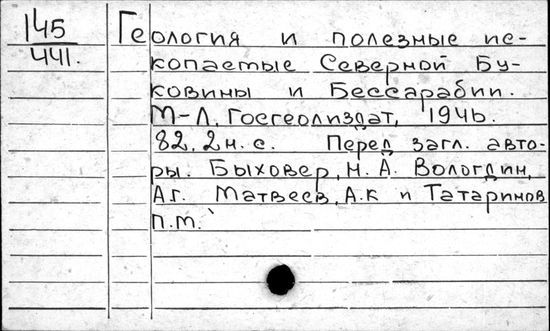 145
441.
Геология и полезные ис-
копаемые Северной Бу-
ковины и Бессарабии.
М-Л, Госгеолиздат, 1946.
82, 2н. с. Перед загл. авто-
ры: Быховер, Н. А. Вологдин,
Аг. Матвеев, А.К и Татаринов
П.М.